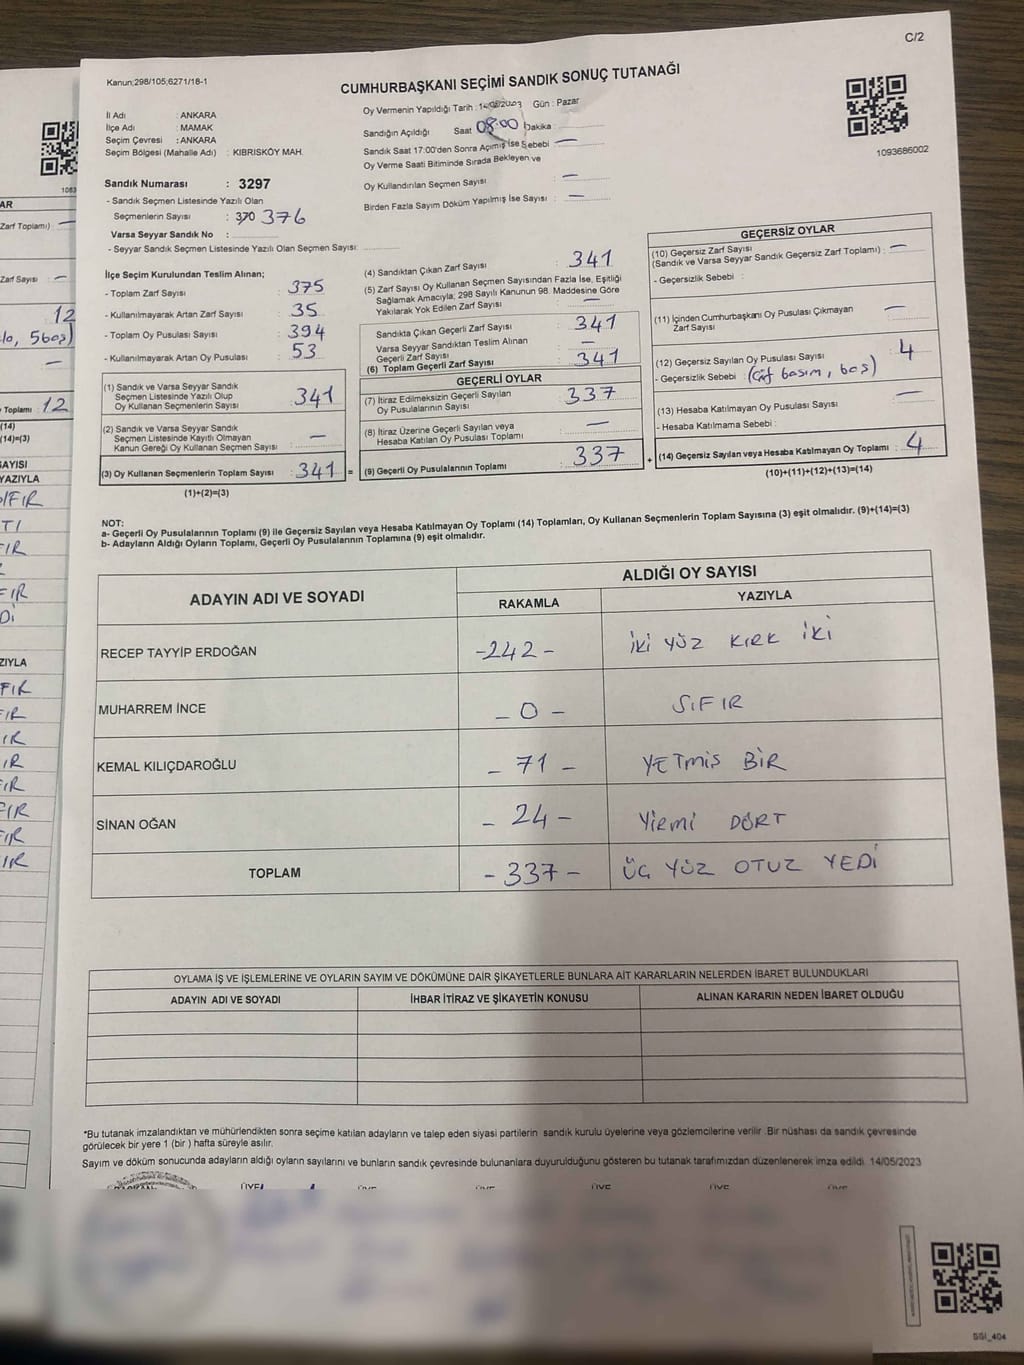 C/2
Kanun;298/105;6271/18-1
CUMHURBAŞKANI SEÇİMİ SANDIK SONUÇ TUTANAĞI
İl Adı : ANKARA
İlçe Adı : MAMAK
Seçim Çevresi : ANKARA
Seçim Bölgesi (Mahalle Adı) : KIBRISKÖY MAH.
Oy Vermenin Yapıldığı Tarih : Gün : Pazar
Sandığın Açıldığı Saat 08:00 Dakika :
Sandık Saat 17:00'den Sonra Açımış İse Sebebi —
Oy Verme Saati Bitiminde Sırada Bekleyen ve
Oy Kullandırılan Seçmen Sayısı : —
Birden Fazla Sayım Döküm Yapılmış İse Sayısı : —
1093686002
Sandık Numarası : 3297
- Sandık Seçmen Listesinde Yazılı Olan
Seçmenlerin Sayısı : 370 376
Varsa Seyyar Sandık No :
- Seyyar Sandık Seçmen Listesinde Yazılı Olan Seçmen Sayısı:
İlçe Seçim Kurulundan Teslim Alınan;
- Toplam Zarf Sayısı : 375
- Kullanılmayarak Artan Zarf Sayısı : 35
- Toplam Oy Pusulası Sayısı : 394
- Kullanılmayarak Artan Oy Pusulası : 53
(1) Sandık ve Varsa Seyyar Sandık
Seçmen Listesinde Yazılı Olup
Oy Kullanan Seçmenlerin Sayısı : 341
(2) Sandık ve Varsa Seyyar Sandık
Seçmen Listesinde Kayıtlı Olmayan
Kanun Gereği Oy Kullanan Seçmen Sayısı : —
(3) Oy Kullanan Seçmenlerin Toplam Sayısı : 341 =
(1)+(2)=(3)
(4) Sandıktan Çıkan Zarf Sayısı : 341
(5) Zarf Sayısı Oy Kullanan Seçmen Sayısından Fazla İse, Eşitliği
Sağlamak Amacıyla; 298 Sayılı Kanunun 98. Maddesine Göre
Yakılarak Yok Edilen Zarf Sayısı : —
Sandıkta Çıkan Geçerli Zarf Sayısı : 341
Varsa Seyyar Sandıktan Teslim Alınan
Geçerli Zarf Sayısı : —
(6) Toplam Geçerli Zarf Sayısı : 341
GEÇERLİ OYLAR
(7) İtiraz Edilmeksizin Geçerli Sayılan
Oy Pusulalarının Sayısı : 337
(8) İtiraz Üzerine Geçerli Sayılan veya
Hesaba Katılan Oy Pusulası Toplamı : —
(9) Geçerli Oy Pusulalarının Toplamı : 337 +
GEÇERSİZ OYLAR
(10) Geçersiz Zarf Sayısı
(Sandık ve Varsa Seyyar Sandık Geçersiz Zarf Toplamı) : —
- Geçersizlik Sebebi :
(11) İçinden Cumhurbaşkanı Oy Pusulası Çıkmayan
Zarf Sayısı : —
(12) Geçersiz Sayılan Oy Pusulası Sayısı : 4
- Geçersizlik Sebebi : (Çift basım, boş)
(13) Hesaba Katılmayan Oy Pusulası Sayısı : —
- Hesaba Katılmama Sebebi :
(14) Geçersiz Sayılan veya Hesaba Katılmayan Oy Toplamı : 4
(10)+(11)+(12)+(13)=(14)
NOT:
a- Geçerli Oy Pusulalarının Toplamı (9) ile Geçersiz Sayılan veya Hesaba Katılmayan Oy Toplamı (14) Toplamları, Oy Kullanan Seçmenlerin Toplam Sayısına (3) eşit olmalıdır. (9)+(14)=(3)
b- Adayların Aldığı Oyların Toplamı, Geçerli Oy Pusulalarının Toplamına (9) eşit olmalıdır.
ADAYIN ADI VE SOYADI ALDIĞI OY SAYISI
RAKAMLA YAZIYLA
RECEP TAYYİP ERDOĞAN -242- İKİ YÜZ KIRK İKİ
MUHARREM İNCE - 0 - SIFIR
KEMAL KILIÇDAROĞLU - 71 - YETMİŞ BİR
SİNAN OĞAN - 24 - YİRMİ DÖRT
TOPLAM - 337 - ÜÇ YÜZ OTUZ YEDİ
OYLAMA İŞ VE İŞLEMLERİNE VE OYLARIN SAYIM VE DÖKÜMÜNE DAİR ŞİKAYETLERLE BUNLARA AİT KARARLARIN NELERDEN İBARET BULUNDUKLARI
ADAYIN ADI VE SOYADI İHBAR İTİRAZ VE ŞİKAYETİN KONUSU ALINAN KARARIN NEDEN İBARET OLDUĞU
*Bu tutanak imzalandıktan ve mühürlendikten sonra seçime katılan adayların ve talep eden siyasi partilerin sandık kurulu üyelerine veya gözlemcilerine verilir .Bir nüshası da sandık çevresinde
görülecek bir yere 1 (bir ) hafta süreyle asılır.
Sayım ve döküm sonucunda adayların aldığı oyların sayılarını ve bunların sandık çevresinde bulunanlara duyurulduğunu gösteren bu tutanak tarafımızdan düzenlenerek imza edildi. 14/05/2023